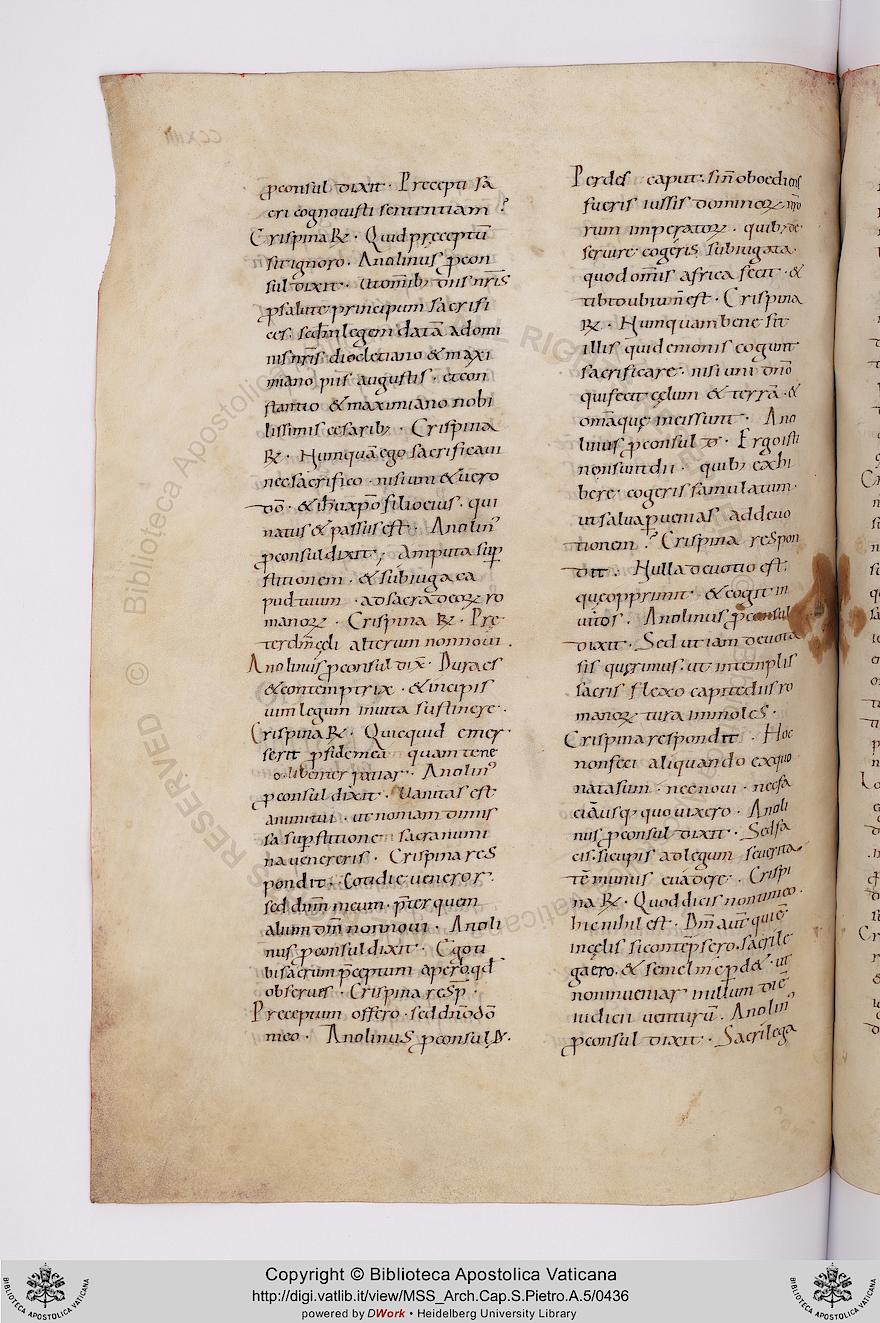 ꝓconsul dixit · Precepti sa
cri cognouisti sententiam ?
Crispina R̷ · Quid preceptū
sit ignoro · Anolinus ꝓcon
sul dixit · Ut omib; diis nr̄is
ꝓ salute principum sacrifi
ces · sedm legem datā a domi
nis nr̄is · diocletiano & maxi
miano piis augustis · et con
stantio & maximiano nobi
lissimis cesarib; · Crispina
R̷ · Numquā ego sacrificaui
nec sacrifico · nisi uni & uero
do̅ · & ih̅u xp̅o filio eius · qui
natus & passus est · Anolin᾿
ꝓconsul dixit ; Amputa suꝑ
stitionem · & subiuga ca
put tuum · ad sacra deoꝝ ro
manoꝝ · Crispina R̷ · Pre
ter dm̅ cęli alterum non noui ·
Anolinus ꝓconsul dix̅ · Dura es
& contemptrix · & incipis
uim legum inuita sustinere ·
Crispina R̷ · Quicquid emer
serit ꝓ fide mea quam tene
o · libenter patiar · Anolin᾿
ꝓconsul dixit · Uanitas est
animi tui · ut non iam dimis
sa suꝑstitione sacra numi
na uenereris · Crispina res
pondit · Cotidie ueneror ·
sed dn̅m meum · p̅ter quem
alium dm̅ non noui · Anoli
nus ꝓconsul dixit · Ego ti
bi sacrum p̅ceptum
obserues · Crispina resp̅ ·
Preceptum offero · sed
meo · Anolinus ꝓconsul R̷ ·
Perdes caput · si n̅ oboediens
fueris iussis dominoꝝ nr̅o
rum imperatoꝝ · quib; de
seruire cogeris subiugata ·
quod omis africa fecit · &
tibi dubium n̅ est · Crispina
R̷ · Numquam bene sit
illis qui demoniis cogunt
sacrificare · nisi uni dn̅o
qui fecit cęlum & terrā · &
omīa quę in eis sunt · Ano
linus ꝓconsul d̅ · Ergo isti
non sunt dii · quib; exhi
bere cogeris famulatum ·
ut salua ꝑuenias ad deuo
tionem ? Crispina respon
dit · Nulla deuotio est ·
quę opprimit · & cogit in
uitos · Anolinus ꝓconsul
dixit · Sed ut iam deuota
sis querimus · ut in templis
sacris flexo capite diis ro
manoꝝ tura immoles ·
Crispina respondit · Hoc
non feci aliquando ex quo
nata sum · nec noui · nec fa
ciā usq; quo uixero · Anoli
nus ꝓconsul dixit · Sed fa
cis · si cupis a legum seuerita
te munus euadere · Crispi
na R̷ · Quod dicis non timeo ·
hic nihil est · Dm̅ aut̅ qui ē
in cęlis si contēpsero · sacrile
ga ero · & semel me ꝑd& · ut
non inueniar in illum diē
iudicii uenturū · Anolin᾿
ꝓconsul dixit · Sacrilega
Copyright © Biblioteca Apostolica Vaticana
http://digi.vatlib.it/view/MSS_Arch.Cap.S.Pietro.A.5/0436
powered by DWork • Heidelberg University Library